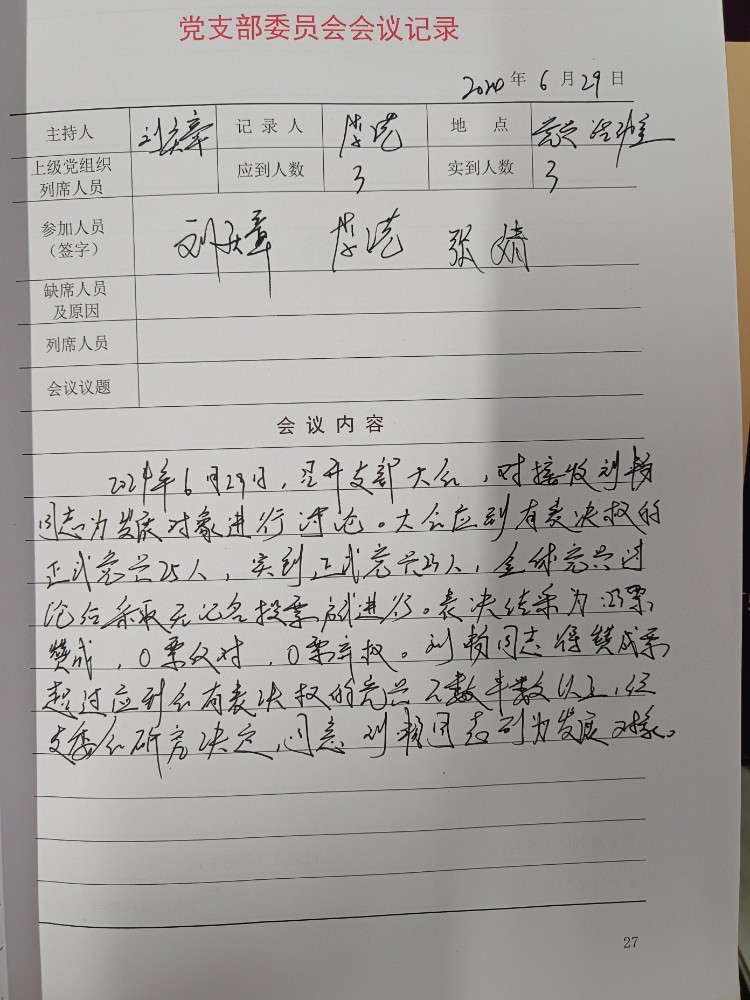 党支部委员会会议记录
2020 年 6 月 29 日
主持人 刘庆章 记录人 地点 党员活动室
上级党组织列席人员 应到人数 3 实到人数 3
参加人员（签字） 刘庆章 张婧
缺席人员及原因
列席人员
会议议题
会议内容
2024年6月29日，召开支部大会，对接收刘畅
同志为发展对象进行讨论。大会应到有表决权的
正式党员25人，实到正式党员23人，全体党员讨
论后采取无记名投票 进行。表决结果为23票
赞成，0票反对，0票弃权。刘畅同志得赞成票
超过应到会有表决权的党员 数半数以上，经
支委会研究决定，同意刘畅同志列为发展对象。
27